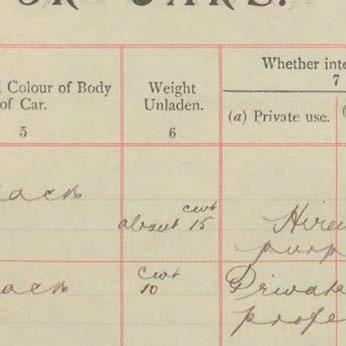 OR CARS.
Colour of Body
of Car.
5
Weight
Unladen.
6
Whether inte
7
(a) Private use.
ack
cwt
about 15
Hire
purp
ack
cwt
10
Private
profe